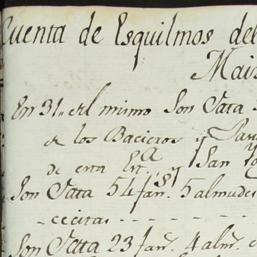 Cuenta de Esquilmos del
Mais
En 31,, del mismo Son Data
de los Bacieros y
de esta Esta. San
Son Data 54 fans. 5 almudes
cecitas
Son Data 23 fans. 4 alms.